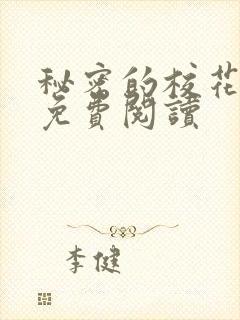 秘密的校花
免費閱讀
李健